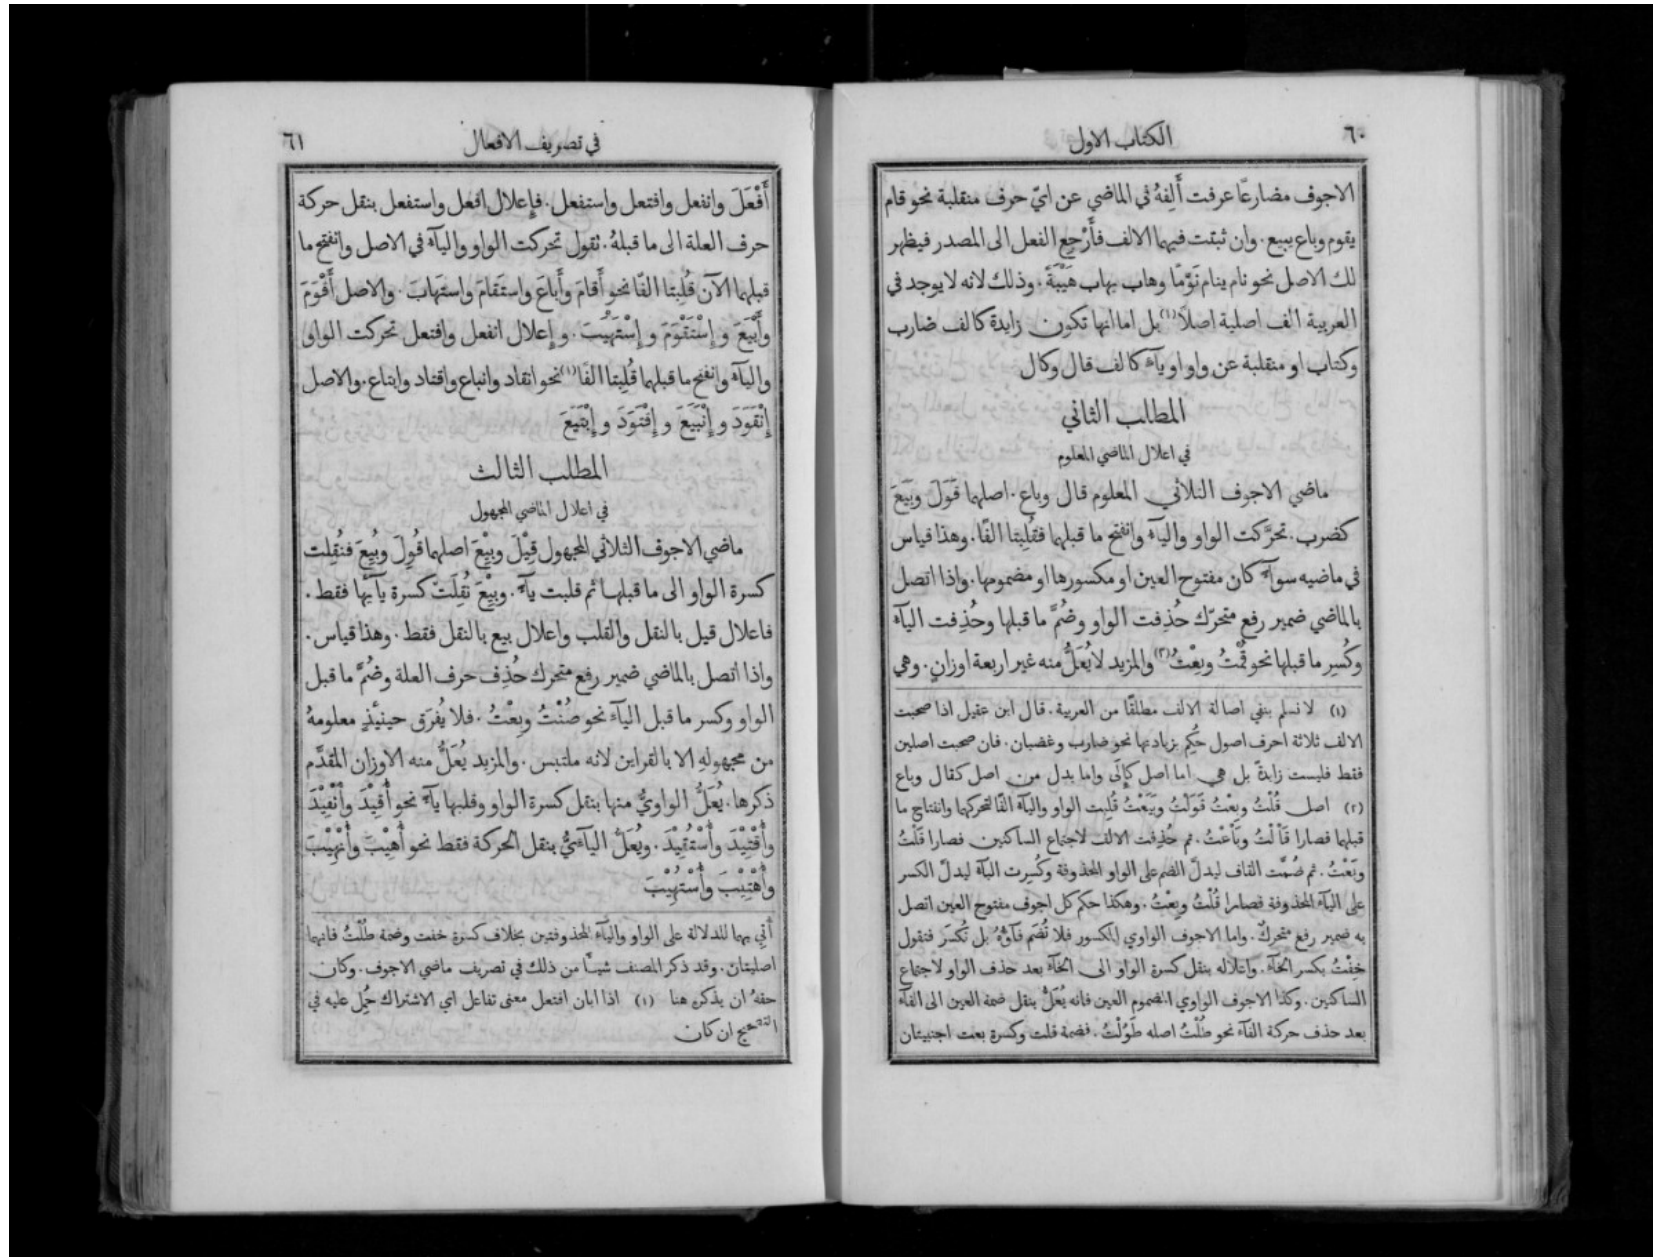 ٦٠
الكتاب الاول
الاجوف مضارعًا عرفت أَلِفهُ في الماضي عن ايّ حرف منقلبة نحو قام
يقوم وباع يبيع. وان ثبتت فيهما الالف فأَرْجِعِ الفعل الى المصدر فيظهر
لك الاصل نحو نام ينام نَوْمًا وهاب يهاب هَيْبَةً. وذلك لانه لا يوجد في
العربية الف اصلية اصلًا (١) بل اما انها تكون زايدة كالف ضارب
وكتاب او منقلبة عن واو او يآءٍ كالف قال وكال
المطلب الثاني
في اعلال الماضي المعلوم
ماضي الاجوف الثلاثي المعلوم قال وباع. اصلهما قَوَلَ وبَيَعَ
كضرب. تحرَّكت الواو واليآء وانفتح ما قبلهما فقُلِبتا الفًا. وهذا قياس
في ماضيه سوآءٌ كان مفتوح العين او مكسورها او مضمومها. واذا اتصل
بالماضي ضمير رفع متحرّك حُذِفت الواو وضُمَّ ما قبلها وحُذِفت اليآء
وكُسِر ما قبلها نحو قُمْتُ وبِعْتُ (٢) والمزيد لا يُعَلُّ منه غير اربعة اوزانٍ. وهي
(١) لا نسلم بنفي اصالة الالف مطلقًا من العربية. قال ابن عقيل اذا صحبت
الالف ثلاثة احرف اصول حُكِم بزيادتها نحو ضارب وغضبان. فان صحبت اصلين
فقط فليست زايدةً بل هي اما اصل كإِلَى واما بدل من اصل كقال وباع
(٢) اصل قُلْتُ وبِعْتُ قَوَلْتُ وبَيَعْتُ قُلِبت الواو واليآء الفًا لتحركهما وانفتاح ما
قبلهما فصارا قَاْلْتُ وبَاْعْتُ. ثم حُذِفت الالف لاجتماع الساكنين فصارا قَلْتُ
وبَعْتُ. ثم ضُمَّت القاف ليدلّ الضم على الواو المحذوفة وكُسِرت البآء ليدلّ الكسر
على اليآء المحذوفة فصارا قُلْتُ وبِعْتُ. وهكذا حكم كل اجوف مفتوح العين اتصل
به ضمير رفع متحركٌ. واما الاجوف الواوي المكسور فلا تُضَم فآؤُهُ بل تُكسَر فتقول
خِفْتُ بكسر الخآء. واعلاله بنقل كسرة الواو الى الخآء بعد حذف الواو لاجتماع
الساكنين. وكذا الاجوف الواوي المضموم العين فانه يُعَلُّ بنقل ضمة العين الى الفآء
بعد حذف حركة الفآء نحو طُلْتُ اصله طَوُلْتُ. فضمة قلت وكسرة بعت اجنبيتان
في تصريف الافعال
٦١
أَفْعَلَ وانفعل وافتعل واستفعل. فإِعلال افعل واستفعل بنقل حركة
حرف العلة الى ما قبلهُ. تقول تحركت الواو واليآء في الاصل وانفتح ما
قبلهما الآنَ قُلِبتا الفًا نحو أَقامَ وأَباعَ واستَقامَ واستَهابَ. والاصل أَقْوَمَ
وأَبْيَعَ وإِسْتَقْوَمَ وإِسْتَهْيَبَ. وإِعلال انفعل وافتعل تحركت الواو
واليآء وانفتح ما قبلهما قُلِبتا الفًا (١) نحو انقاد وانباع واقتاد وابتاع. والاصل
إِنْقَوَدَ وإِنْبَيَعَ وإِقْتَوَدَ وإِبْتَيَعَ
المطلب الثالث
في اعلال الماضي المجهول
ماضي الاجوف الثلاثي المجهول قِيْلَ وبِيْعَ اصلهما قُوِلَ وبُيِعَ فنُقِلت
كسرة الواو الى ما قبلها ثم قلبت يآءً. وبِيْعَ نُقِلَتْ كسرة يآئِها فقط.
فاعلال قيل بالنقل والقلب واعلال بيع بالنقل فقط. وهذا قياس.
واذا اتصل بالماضي ضمير رفع متحرك حُذِف حرف العلة وضُمَّ ما قبل
الواو وكسر ما قبل اليآءِ نحو صُنْتُ وبِعْتُ. فلا يُفرَق حينئذٍ معلومهُ
من مجهولهِ الا بالقراين لانه ملتبس. والمزيد يُعَلُّ منه الاوزان المقدَّم
ذكرها. يُعَلُّ الواويُّ منها بنقل كسرة الواو وقلبها يآءً نحو أُقِيْدَ وأُنْقِيْدَ
وأُقْتِيْدَ وأُسْتُقِيْدَ. ويُعَلُّ اليآءيُّ بنقل الحركة فقط نحو أُهِيْبَ وأُنْهِيْبَ
وأُهْتِيْبَ وأُسْتُهِيْبَ
أُتِي بهما للدلالة على الواو واليآء المحذوفتين بخلاف كسرة خفت وضمة طُلْتُ فانهما
اصليتان. وقد ذكر المصنف شيـًا من ذلك في تصريف ماضي الاجوف. وكان
حقهُ ان يذكره هنا (١) اذا ابان افتعل معنى تفاعل اي الاشتراك حُمِل عليه في
التصحيح ان كان